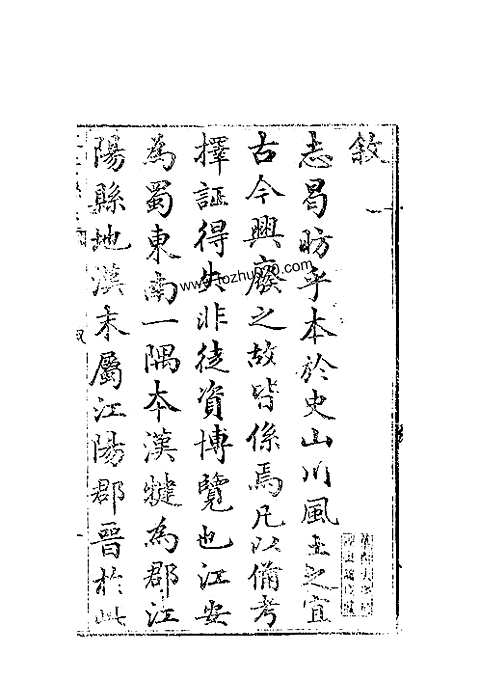 敘
志曷昉乎本於史山川風土之宜
古今興廢之故皆係焉凡以備考
擇証得失非徒資博覽也江安
為蜀東南一隅本漢犍為郡江
陽縣地漢末屬江陽郡晉於此
www.tozhu90.com